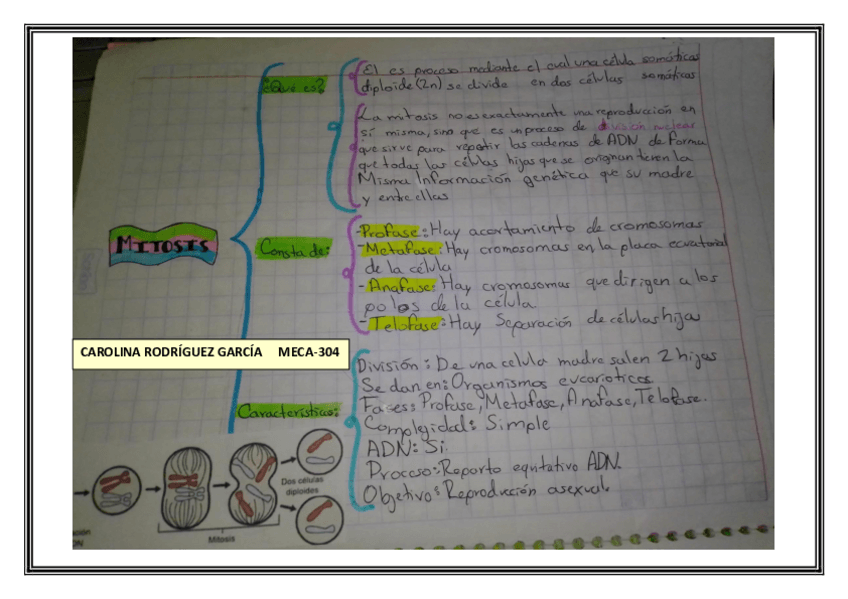 ¿Qué es?
El es proceso mediante el cual una célula somática
diploide (2n) se divide en dos células somáticas
La mitosis no es exactamente una reproducción en
sí misma, sino que es un proceso de división nuclear
que sirve para repartir las cadenas de ADN de forma
que todas las células hijas que se originan tienen la
Misma Información genética que su madre
y entre ellas
MITOSIS
Consta de:
-Profase: Hay acortamiento de cromosomas
-Metafase: Hay cromosomas en la placa ecuatorial
de la célula
-Anafase: Hay cromosomas que dirigen a los
polos de la célula
-Telofase: Hay Separación de células hija
CAROLINA RODRÍGUEZ GARCÍA MECA-304
Características:
División: De una celula madre salen 2 hijas
Se dan en: Organismos eucarioticos
Fases: Profase, Metafase, Anafase, Telofase.
Complegidad: Simple
ADN: Si
Proceso: Reporto equitativo ADN.
Objetivo: Reproducción asexual.
Dos células
diploides
Mitosis